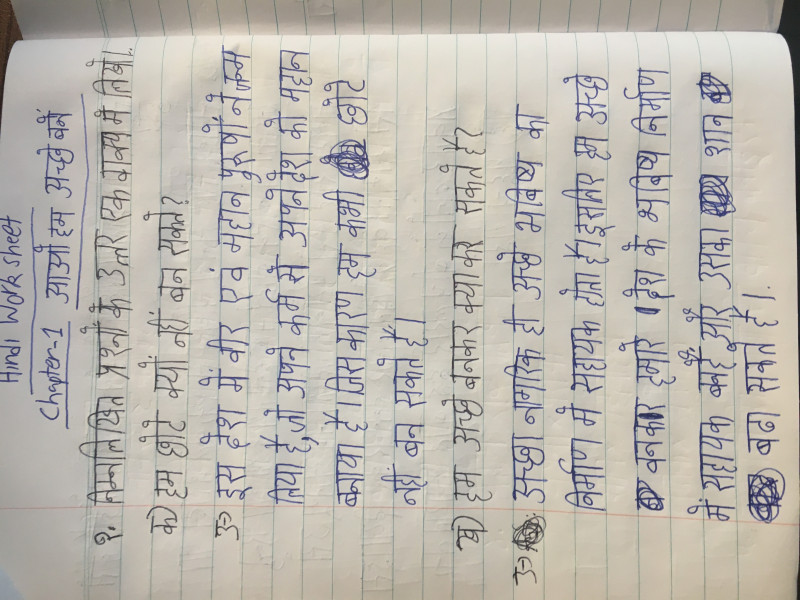 Hindi Work sheet
Chapter-1 आओ हम अच्छे बनें
१. निम्नलिखित प्रश्नों के उत्तर एक वाक्य में लिखो।
क) हम छोटे क्यों नहीं बन सकते?
उ→ इस देश में वीर एवं महान पुरूषों ने जन्म
लिया हैं, जो अपने कर्म से अपने देश को महान
बनाया हैं। जिस कारण हम कभी छोटे
नहीं बन सकते हैं।
ख) हम अच्छे बनकर क्या कर सकते हैं?
उ→ अच्छा नागरिक ही अच्छे भविष्य का
निर्माण में सहायक होता हैं। इसलिए हम अच्छे
बनकर हमारे देश के भविष्य निर्माण
में सहायक बनें और उसका शान
बढा सकते हैं।